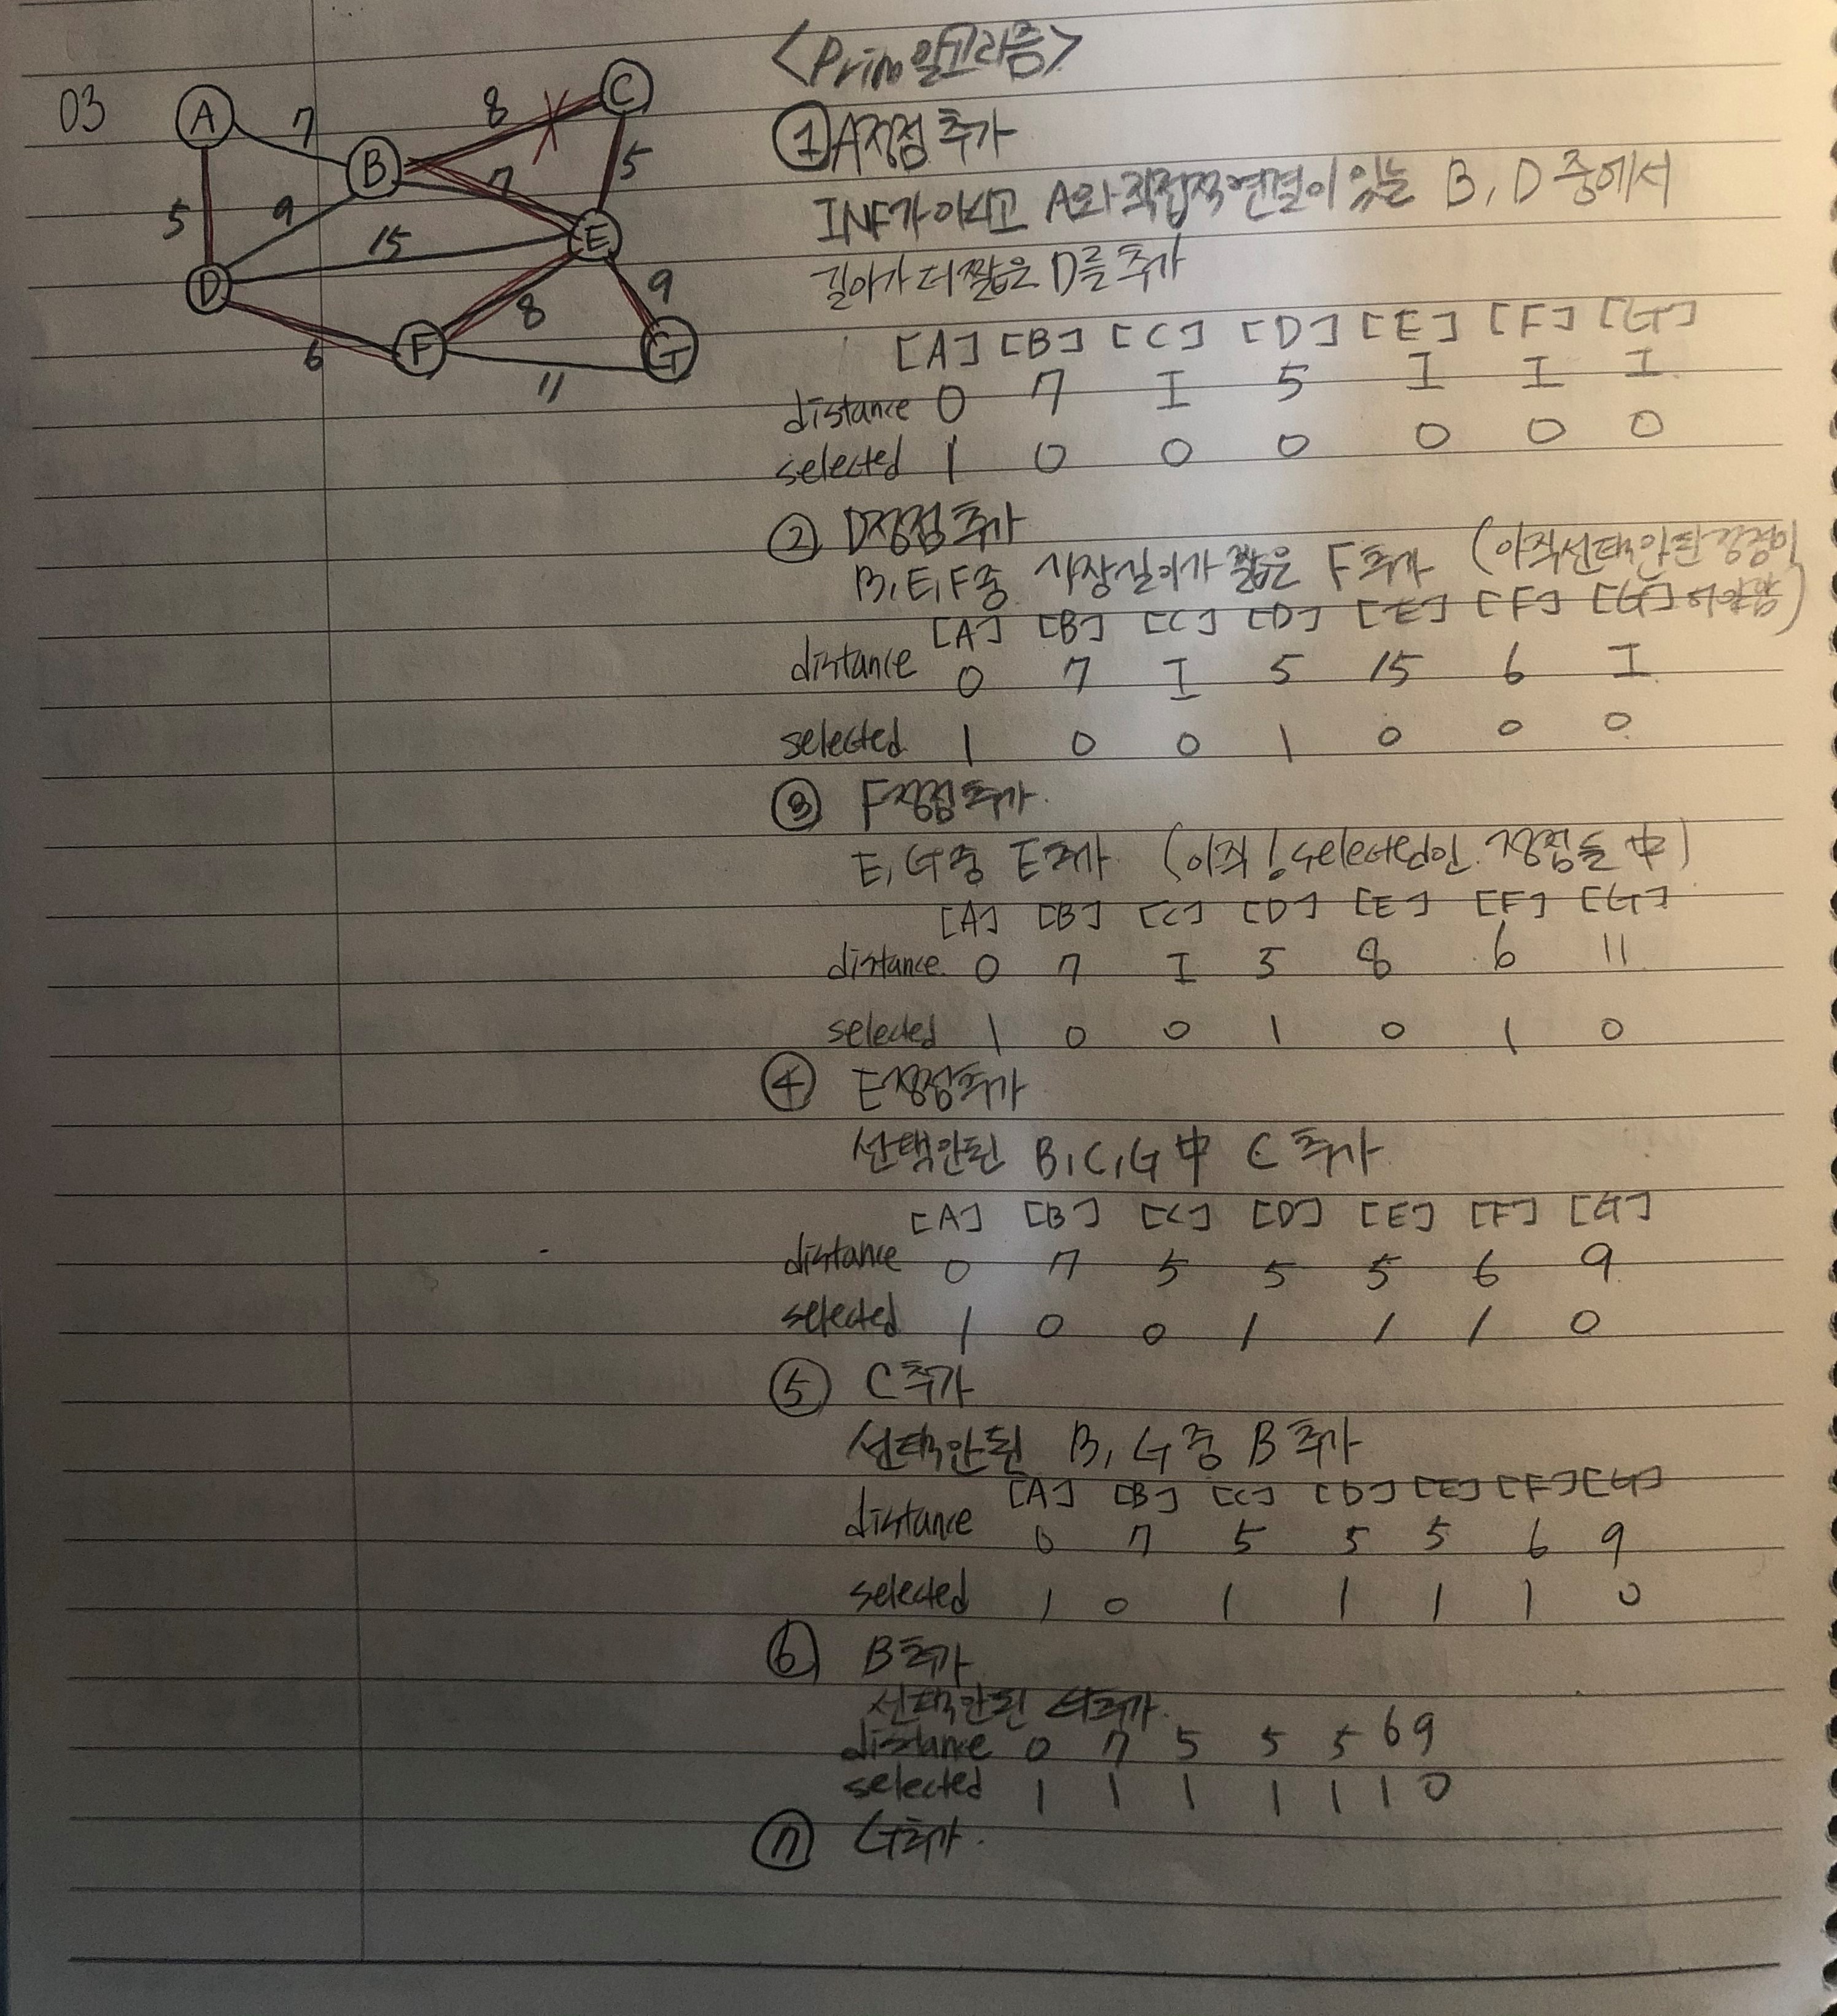 03
A
B
C
D
E
F
G
7
8
5
9
7
5
15
9
6
8
11
<Prim알고리즘>
① A정점 추가
INF가 아시고 A와 직접적 연결이 있는 B, D 중에서
길이가 더 짧은 D를 추가
[A] [B] [C] [D] [E] [F] [G]
distance 0 7 I 5 I I I
selected 1 0 0 0 0 0 0
② D정점 추가
B, E, F중 가장 길이가 짧은 F 추가 (아직 선택 안된 정점이
[A] [B] [C] [D] [E] [F] [G] 어야함)
distance 0 7 I 5 15 6 I
selected 1 0 0 1 0 0 0
③ F정점 추가.
E, G중 E추가 (아직 !selected인 정점들 中)
[A] [B] [C] [D] [E] [F] [G]
distance 0 7 I 5 8 6 11
selected 1 0 0 1 0 1 0
④ E정점 추가
선택안된 B, C, G 中 C 추가
[A] [B] [C] [D] [E] [F] [G]
distance 0 7 5 5 5 6 9
selected 1 0 0 1 1 1 0
⑤ C 추가
선택안된 B, G 중 B 추가
[A] [B] [C] [D] [E] [F] [G]
distance 0 7 5 5 5 6 9
selected 1 0 1 1 1 1 0
⑥ B 추가
선택안된 G추가.
distance 0 7 5 5 5 6 9
selected 1 1 1 1 1 1 0
⑦ G추가.